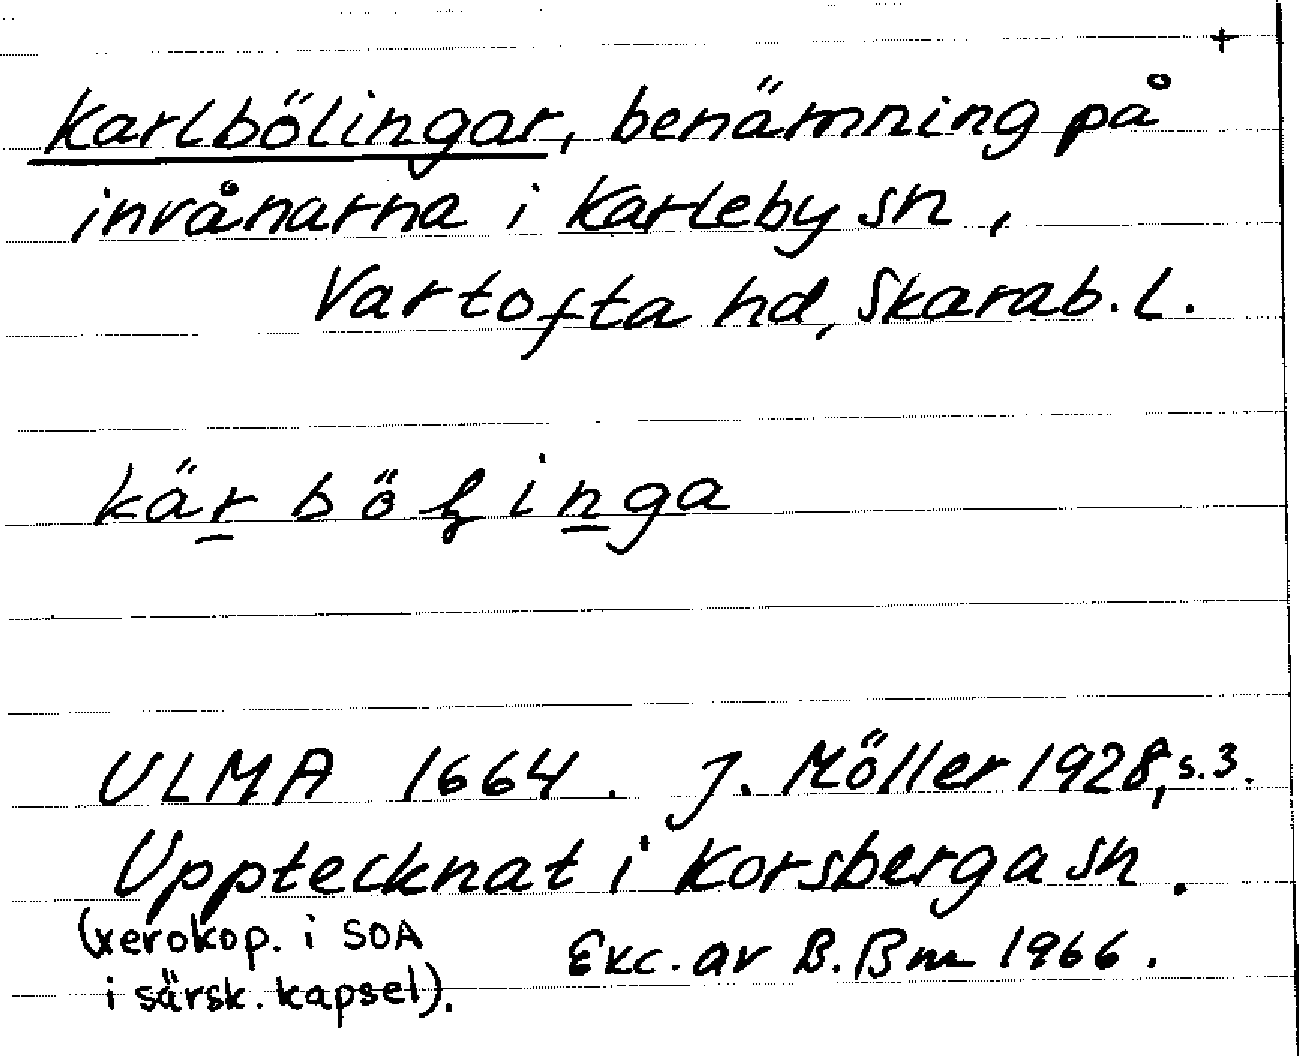 +
Karlbölingar, benämning på
invånarna i Karleby sn,
Vartofta hd, Skarab. l.
kärböłinga
ULMA 1664. J. Möller 1928, s. 3.
Upptecknat i Korsberga sn.
(xerokop. i SOA
i särsk. kapsel).
Exc. av B. Bm 1966.